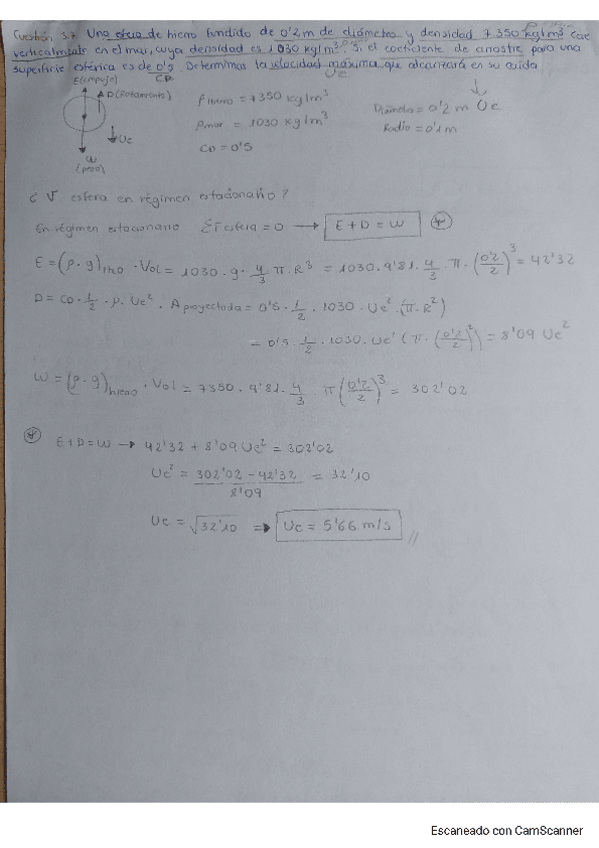 Cuestión 3.7 Una esfera de hierro fundido de 0'2 m de diámetro y densidad 7350 kg/m³ cae
verticalmente en el mar, cuya densidad es 1030 kg/m³. Si el coeficiente de arrastre para una
superficie esférica es de 0'5 Determinar la velocidad máxima que alcanzará en su caída
CD Uc
E (empuje)
D (Rozamiento)
Uc
W
(peso)
ρ hierro = 7350 kg/m³
ρ mar = 1030 kg/m³
CD = 0'5
Uc
Diámetro = 0'2 m
Radio = 0'1 m
¿ V esfera en régimen estacionario?
En régimen estacionario ΣF esfera = 0 → E + D = W
E = (ρ · g) · Vol = 1030 · g · 4/3 π · R³ = 1030 · 9'81 · 4/3 · π · (0'2/2)³ = 42'32
D = CD · 1/2 · ρ · Uc² · A proyectada = 0'5 · 1/2 · 1030 · Uc² · (π · R²)
= 0'5 · 1/2 · 1030 · Uc² (π · (0'2/2)²) = 8'09 Uc²
W = (ρ · g) hierro · Vol = 7350 · 9'81 · 4/3 π (0'2/2)³ = 302'02
E + D = W → 42'32 + 8'09 Uc² = 302'02
Uc² = 302'02 - 42'32 / 8'09 = 32'10
Uc = √32'10 ⇒ Uc = 5'66 m/s
Escaneado con CamScanner